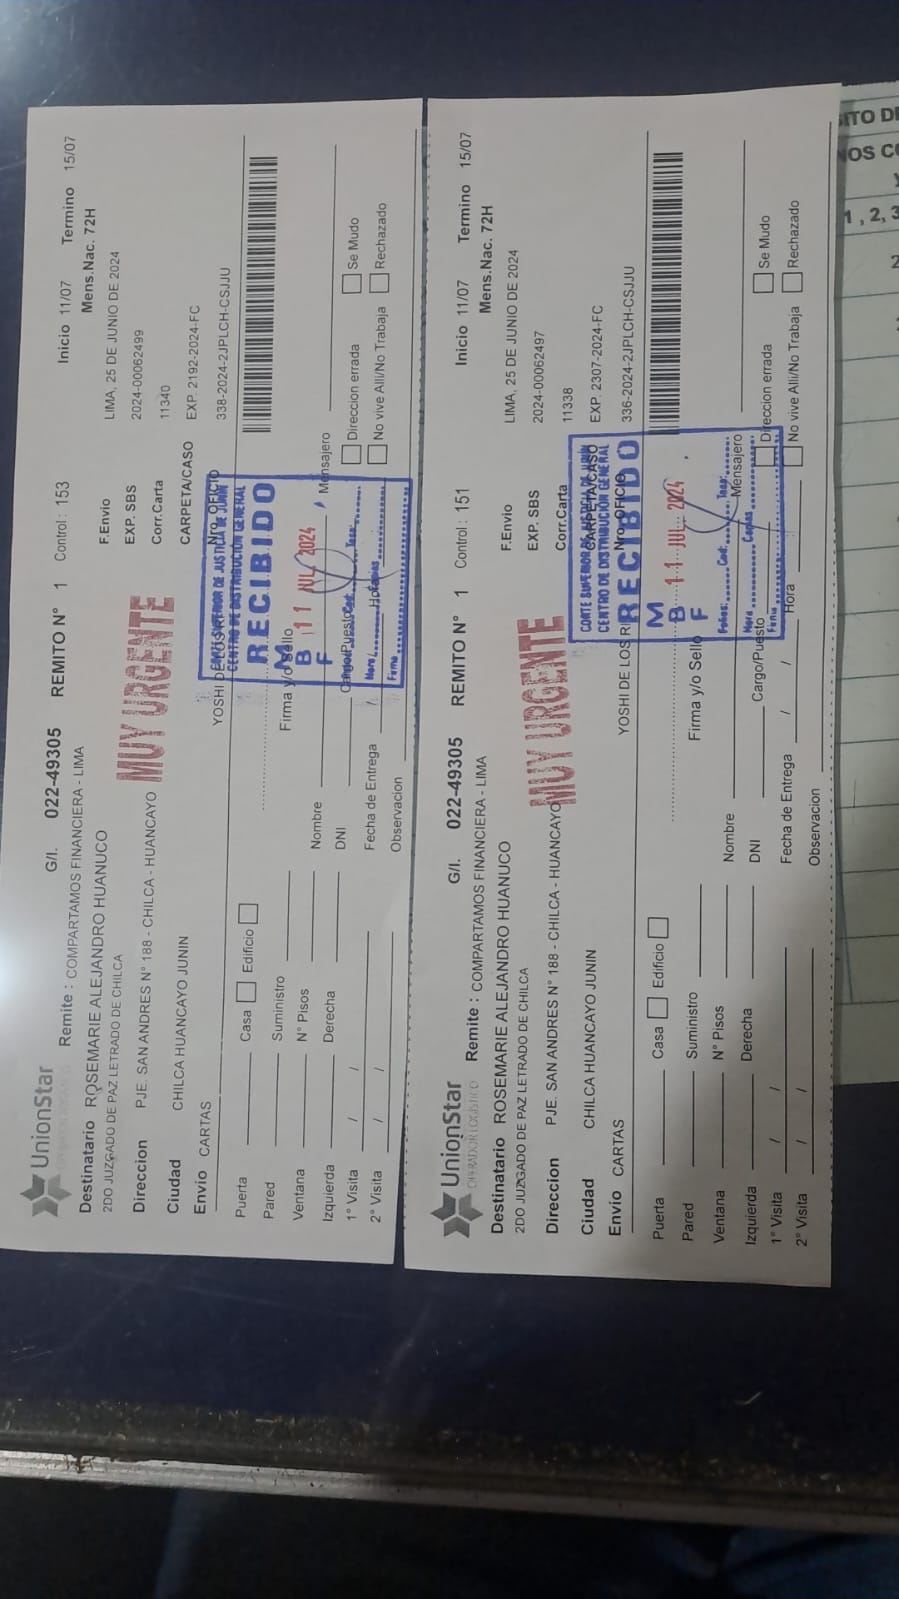 UnionStar
G/I. 022-49305 REMITO N° 1 Control : 153 Inicio 11/07 Termino 15/07
Remite : COMPARTAMOS FINANCIERA - LIMA Mens.Nac. 72H
Destinatario ROSEMARIE ALEJANDRO HUANUCO F.Envio LIMA, 25 DE JUNIO DE 2024
2DO JUZGADO DE PAZ LETRADO DE CHILCA EXP. SBS 2024-00062499
Direccion PJE. SAN ANDRES N° 188 - CHILCA - HUANCAYO Corr.Carta 11340
MUY URGENTE
Ciudad CHILCA HUANCAYO JUNIN CARPETA/CASO EXP. 2192-2024-FC
Envio CARTAS YOSHI DE Nro. OFICIO 338-2024-2JPLCH-CSJJU
CORTE SUPERIOR DE JUSTICIA DE JUNIN
CENTRO DE DISTRIBUCIÓN GENERAL
RECIBIDO
M
B 11 JUL 2024
F
Hora
Firma
Puerta Casa Edificio
Pared Suministro Firma y/o Sello
Ventana N° Pisos Nombre Mensajero
Izquierda Derecha DNI Cargo/Puesto Direccion errada Se Mudo
1° Visita / / Fecha de Entrega / Hora No vive Alli/No Trabaja Rechazado
2° Visita / / Observacion
UnionStar
OPERADOR LOGISTICO
G/I. 022-49305 REMITO N° 1 Control : 151 Inicio 11/07 Termino 15/07
Remite : COMPARTAMOS FINANCIERA - LIMA Mens.Nac. 72H
Destinatario ROSEMARIE ALEJANDRO HUANUCO F.Envio LIMA, 25 DE JUNIO DE 2024
2DO JUZGADO DE PAZ LETRADO DE CHILCA EXP. SBS 2024-00062497
Direccion PJE. SAN ANDRES N° 188 - CHILCA - HUANCAYO Corr.Carta 11338
MUY URGENTE
Ciudad CHILCA HUANCAYO JUNIN CARPETA/CASO EXP. 2307-2024-FC
Envio CARTAS YOSHI DE LOS RI Nro. OFICIO 336-2024-2JPLCH-CSJJU
CORTE SUPERIOR DE JUSTICIA DE JUNIN
CENTRO DE DISTRIBUCIÓN GENERAL
RECIBIDO
M
B 11 JUL. 2024
F
Folios: Cod: Tasa:
Hora Copias
Firma
Puerta Casa Edificio
Pared Suministro Firma y/o Sello
Ventana N° Pisos Nombre Mensajero
Izquierda Derecha DNI Cargo/Puesto Direccion errada Se Mudo
1° Visita / / Fecha de Entrega / / Hora No vive Alli/No Trabaja Rechazado
2° Visita / / Observacion
ITO DE
NOS CO
1 , 2, 3
2